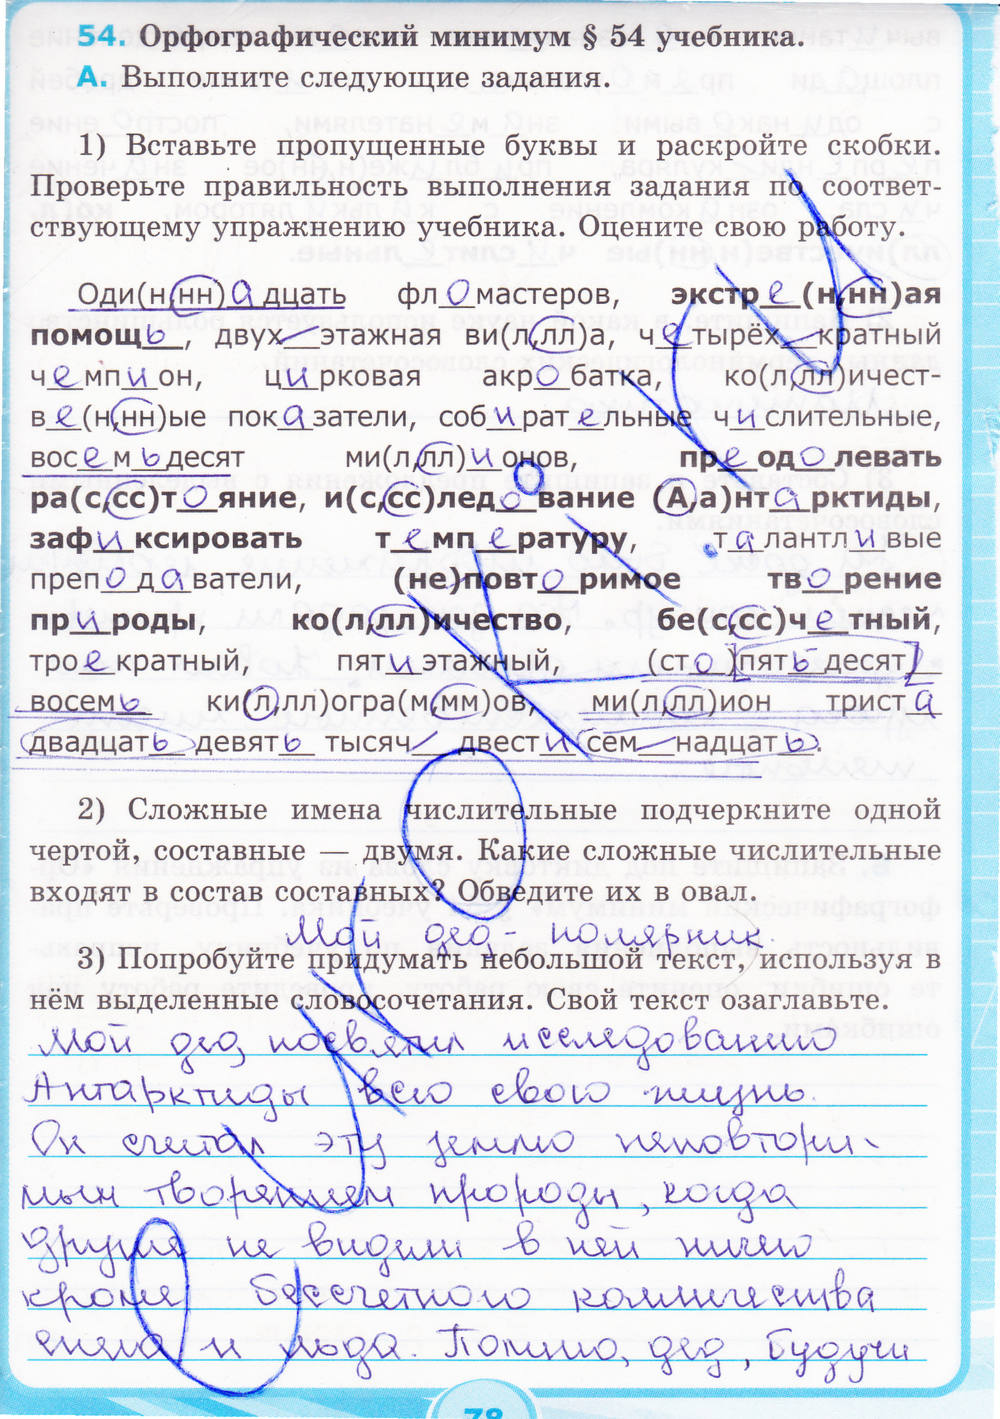 54. Орфографический минимум § 54 учебника.
А. Выполните следующие задания.
1) Вставьте пропущенные буквы и раскройте скобки.
Проверьте правильность выполнения задания по соответ-
ствующему упражнению учебника. Оцените свою работу.
Оди(н,нн)а дцать фл о мастеров, экстр е (н,нн)ая
помощь , двух этажная ви(л,лл)а, ч е тырёх кратный
ч е мп и он, ц и рковая акр о батка, ко(л,лл)ичест-
в е (н,нн)ые пок а затели, соб и рат е льные ч и слительные,
вос е м ь десят ми(л,лл) и онов, пр е од о левать
ра(с,сс)т о яние, и(с,сс)лед о вание (А,а)нт а рктиды,
заф и ксировать т е мп е ратуру, т а лантл и вые
преп о д а ватели, (не)повт о римое тв о рение
пр и роды, ко(л,лл)ичество, бе(с,сс)ч е тный,
трое кратный, пят и этажный, (ст о ) пят ь десят
восем ь ки(л,лл)огра(м,мм)ов, ми(л,лл)ион трист а
двадцат ь девят ь тысяч двест и сем надцат ь .
2) Сложные имена числительные подчеркните одной
чертой, составные — двумя. Какие сложные числительные
входят в состав составных? Обведите их в овал.
Мой дед - полярник
3) Попробуйте придумать небольшой текст, используя в
нём выделенные словосочетания. Свой текст озаглавьте.
Мой дед посвятил исследованию
Антарктиды всю свою жизнь.
Он считал эту землю неповтори-
мым творением природы, когда
другие не видели в ней ничего
кроме бессчетного количества
снега и льда. Помню, дед, будучи
78